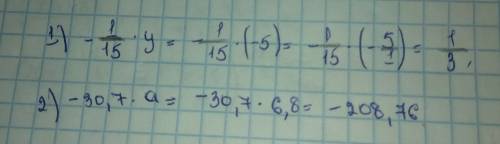 1) -1/15 · y = -1/15 · (-5) = -1/15 · (-5/1) = 1/3,
2) -30,7 · a = -30,7 · 6,8 = -208,76